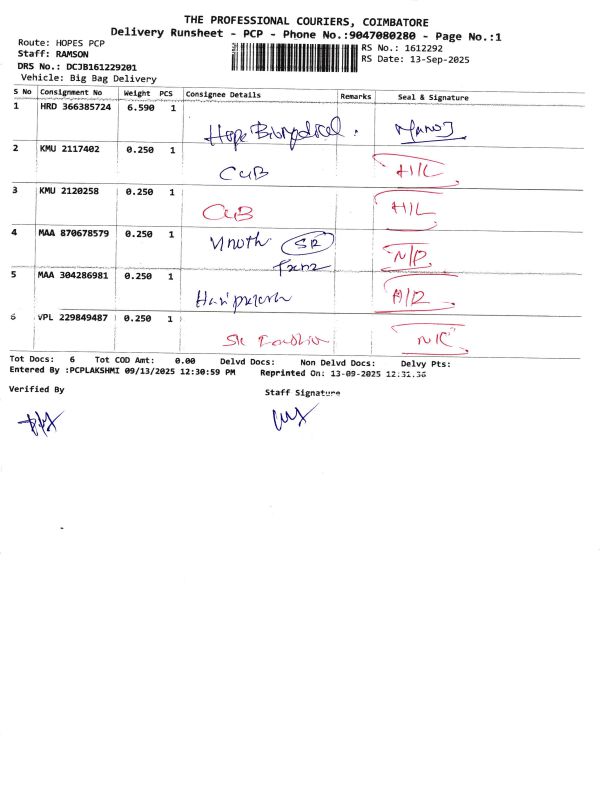 THE PROFESSIONAL COURIERS, COIMBATORE
Delivery Runsheet - PCP - Phone No.:9047080280 - Page No.:1
Route: HOPES PCP
Staff: RAMSON
DRS No.: DCJB161229201
Vehicle: Big Bag Delivery
RS No.: 1612292
RS Date: 13-Sep-2025
S No Consignment No Weight PCS Consignee Details Remarks Seal & Signature
1 HRD 366385724 6.590 1
Hope Biomedical. Manoj
2 KMU 2117402 0.250 1
CUB H/L
3 KMU 2120258 0.250 1
CUB H/L
4 MAA 870678579 0.250 1
Vinoth SR N/P
5 MAA 304286981 0.250 1
Hariprakash
6 VPL 229849487 0.250 1
SK
Tot Docs: 6 Tot COD Amt: 0.00 Delvd Docs: Non Delvd Docs: Delvy Pts:
Entered By :PCPLAKSHMI 09/13/2025 12:30:59 PM Reprinted On: 13-09-2025 12:31:36
Verified By
Staff Signature